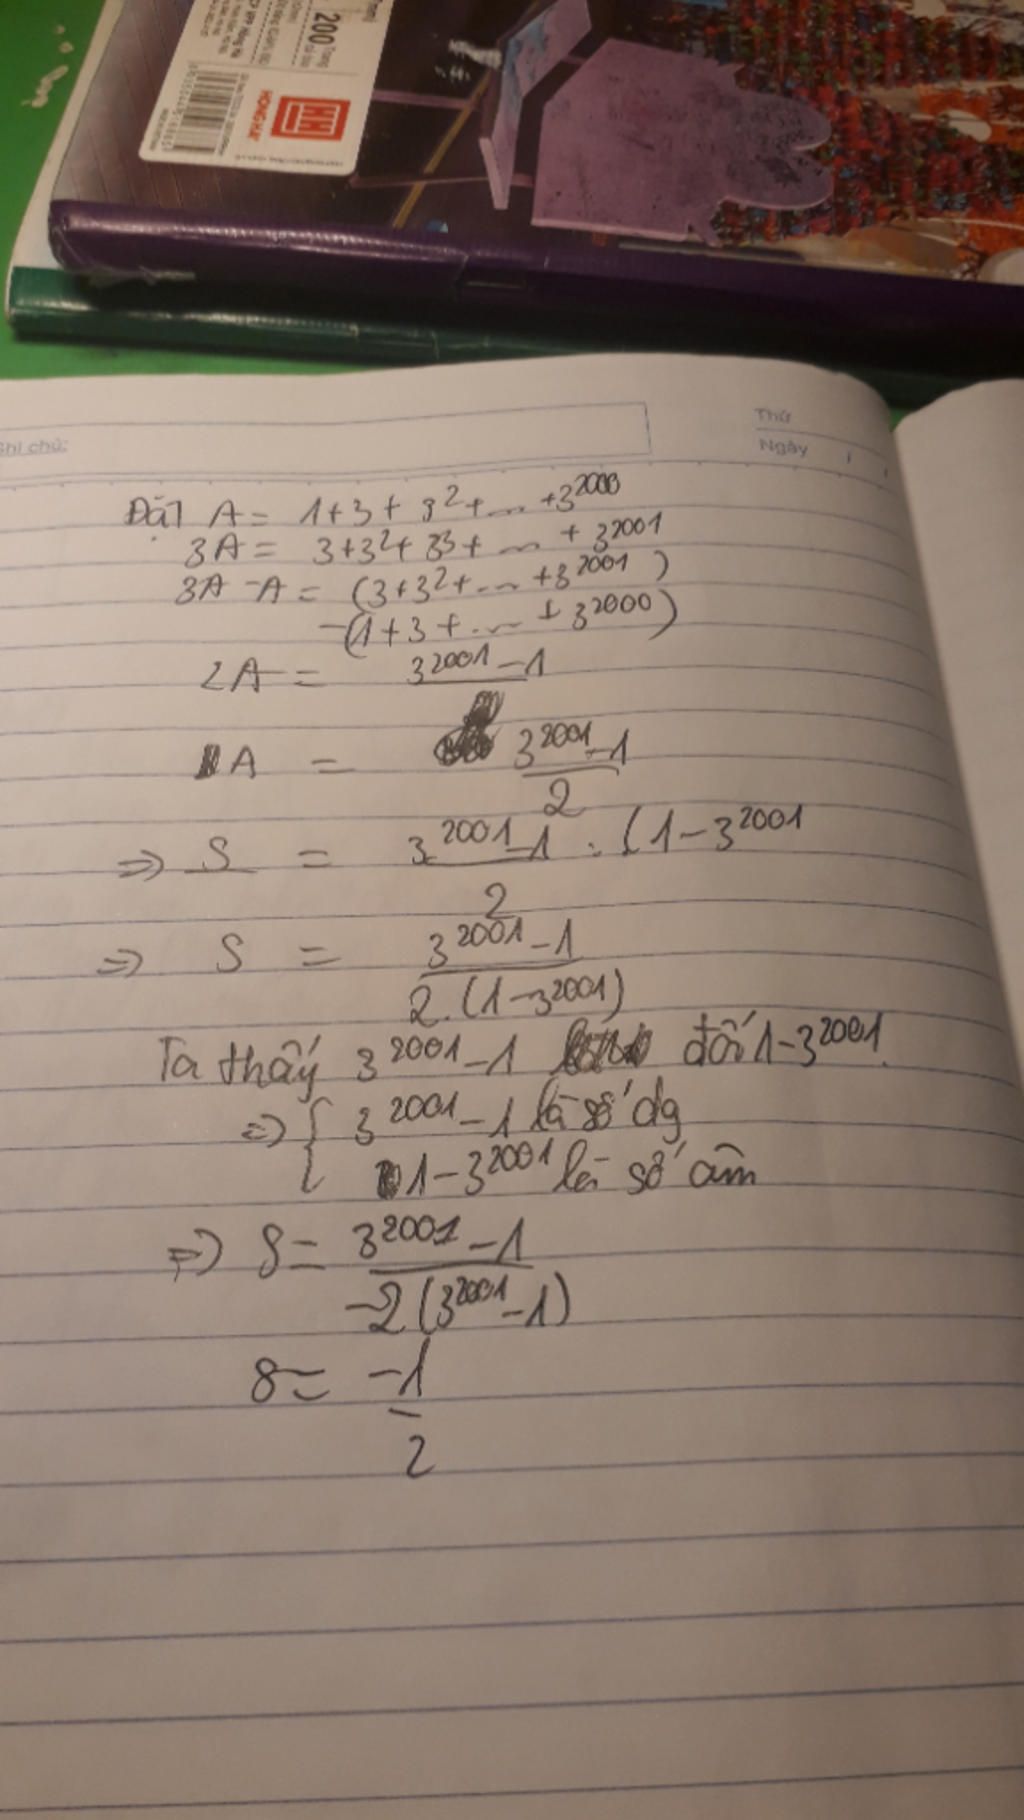 200
HONG HA
Ghi chú:
Thứ
Ngày / /
Đặt A = 1+3+ 3² + ... +3²⁰⁰⁰
3A = 3+3²+ 3³+ ... + 3²⁰⁰¹
3A -A = (3+3²+... +3²⁰⁰¹ )
-(1+3+... + 3²⁰⁰⁰)
2A = 3²⁰⁰¹-1
A = 3²⁰⁰¹-1 / 2
=> S = 3²⁰⁰¹-1 / 2 : (1-3²⁰⁰¹
=> S = 3²⁰⁰¹-1 / 2.(1-3²⁰⁰¹)
Ta thấy 3²⁰⁰¹-1 đối 1-3²⁰⁰¹.
=> { 3²⁰⁰¹-1 là số dg
1-3²⁰⁰¹ là số âm
=> S = 3²⁰⁰¹-1 / -2(3²⁰⁰¹-1)
S = -1 / 2